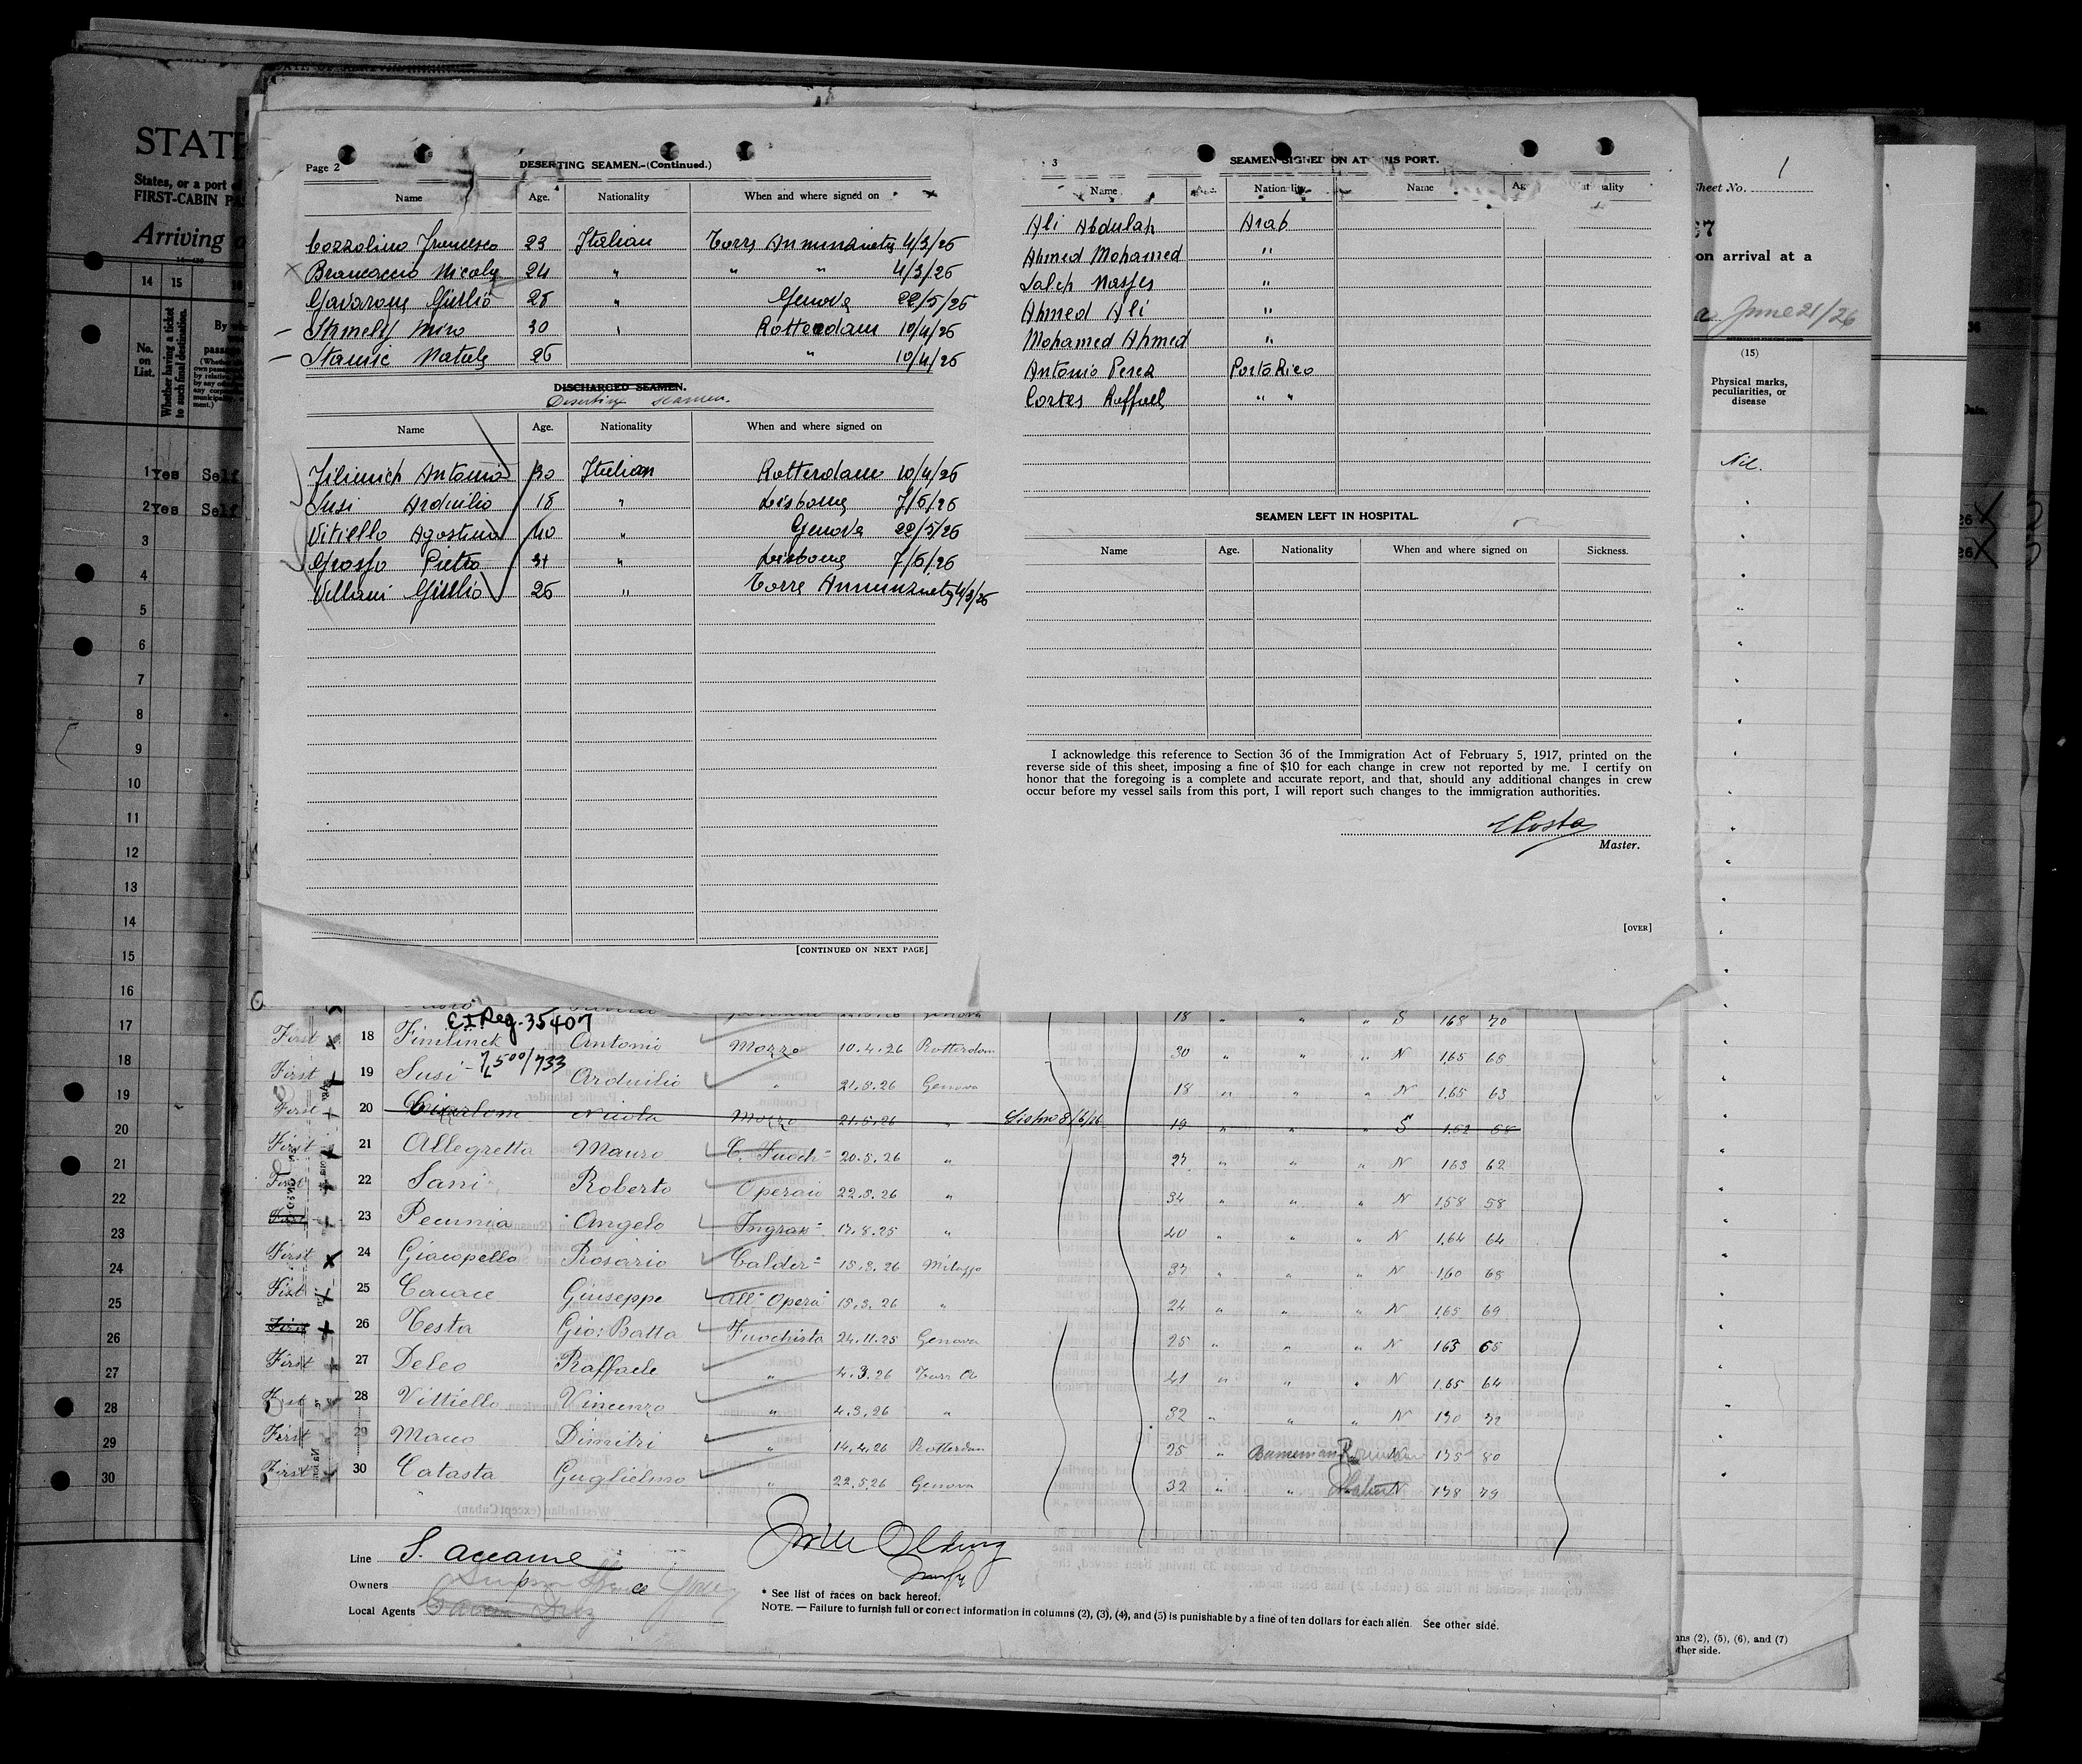 STATE
States, or a port
FIRST-CABIN PA
Arriving
14 15
No. on List.
Whether having a ticket to such final destination.
1 Yes Self
2 Yes Self
3
4
5
6
7
8
9
10
11
12
13
14
15
16
17
18
19
20
21
22
23
24
25
26
27
28
29
30
Page 2
DESERTING SEAMEN.-(Continued.)
Name Age. Nationality When and where signed on
Cozzolino Francesco 23 Italian Torre Annunziata 4/3/26
Brancaccio Nicola 24 " " " 4/3/26
Gavarone Giulio 25 " Genova 22/5/26
Miro 30 " Rotterdam 10/4/26
Stanisic Natale 26 " 10/4/26
DISCHARGED SEAMEN.
Deserting seamen.
Name Age. Nationality When and where signed on
Filinich Antonio 30 Italian Rotterdam 10/4/26
Susi Arduilio 18 " Lisbona 7/6/26
Vitiello Agostino 40 " Genova 22/5/26
Grosso Pietro 31 " Lisbona 7/6/26
Villani Giulio 26 " Torre Annunziata 4/3/26
[CONTINUED ON NEXT PAGE]
3
SEAMEN SIGNED ON AT THIS PORT.
Name Age. Nationality Name Age. Nationality
Ali Abdulah Arab
Ahmed Mohamed "
Saleh Nasser "
Ahmed Ali "
Mohamed Ahmed "
Antonio Perez Porto Rico
Cortes Raffael " "
SEAMEN LEFT IN HOSPITAL.
Name Age. Nationality When and where signed on Sickness.
I acknowledge this reference to Section 36 of the Immigration Act of February 5, 1917, printed on the
reverse side of this sheet, imposing a fine of $10 for each change in crew not reported by me. I certify on
honor that the foregoing is a complete and accurate report, and that, should any additional changes in crew
occur before my vessel sails from this port, I will report such changes to the immigration authorities.
Costa
Master.
[OVER]
Sheet No. 1
on arrival at a
June 21/26
(15)
Physical marks, peculiarities, or disease
Nil.
18 " " " S 168 70
C.I. Reg. 35407
First 18 Finilinck Antonio Mozzo 10.4.26 Rotterdam 30 " " " N 1,65 65
7500/733
First 19 Susi Arduilio " 21.5.26 Genova 18 " " " N 1,65 63
First 20 Nicola Mozzo 21.5.26 " Lisbno 8/6/26 19 " " " S 1,52 58
First 21 Allegretta Mauro C. Fuoch= 20.5.26 " 27 " " " N 163 62
First 22 Sani Roberto Operaio 22.5.26 " 34 " " " N 1,58 58
First 23 Pecunia Angelo Ingras= 17.8.25 " 40 " " " N 1,64 64
First 24 Giacopello Rosario Calder= 15.3.26 Milazzo 37 " " " N 1,60 68
First 25 Giuseppe All= Opera= 15.3.26 " 24 " " " N 1,65 69
First 26 Testa Gio: Batta Fuochista 24.11.25 Genova 25 " " " N 163 65
First 27 Deleo Raffaele " 4.3.26 Torre A 41 " " " N 1,65 64
First 28 Vittiello Vincenzo " 4.3.26 " 32 " " " N 170 72
First 29 Dimitri " 14.4.26 Rotterdam 25 " N 175 80
First 30 Catasta Guglielmo " 22.5.26 Genova 32 " " Italian N 178 79
Line S. Accame
Owners
Local Agents
* See list of races on back hereof.
NOTE. — Failure to furnish full or correct information in columns (2), (3), (4), and (5) is punishable by a fine of ten dollars for each alien. See other side.
mns (2), (5), (6), and (7)
other side.